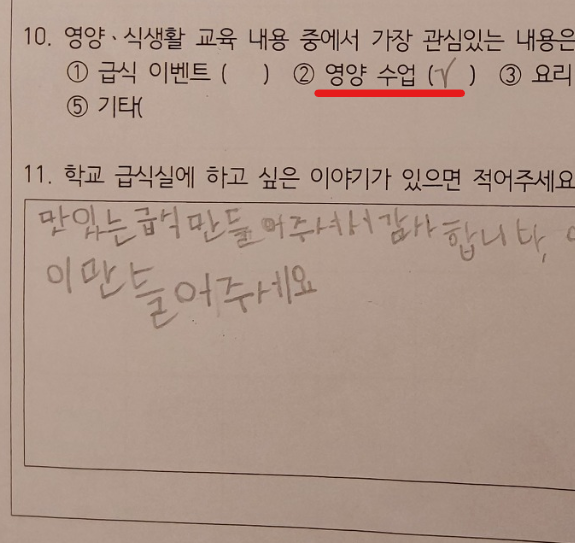 10. 영양、식생활 교육 내용 중에서 가장 관심있는 내용은
① 급식 이벤트 (    ) ② 영양 수업 (√ ) ③ 요리
⑤ 기타(
11. 학교 급식실에 하고 싶은 이야기가 있으면 적어주세요
맛있는급식만들어주셔서감사합니다,
이만들어주세요